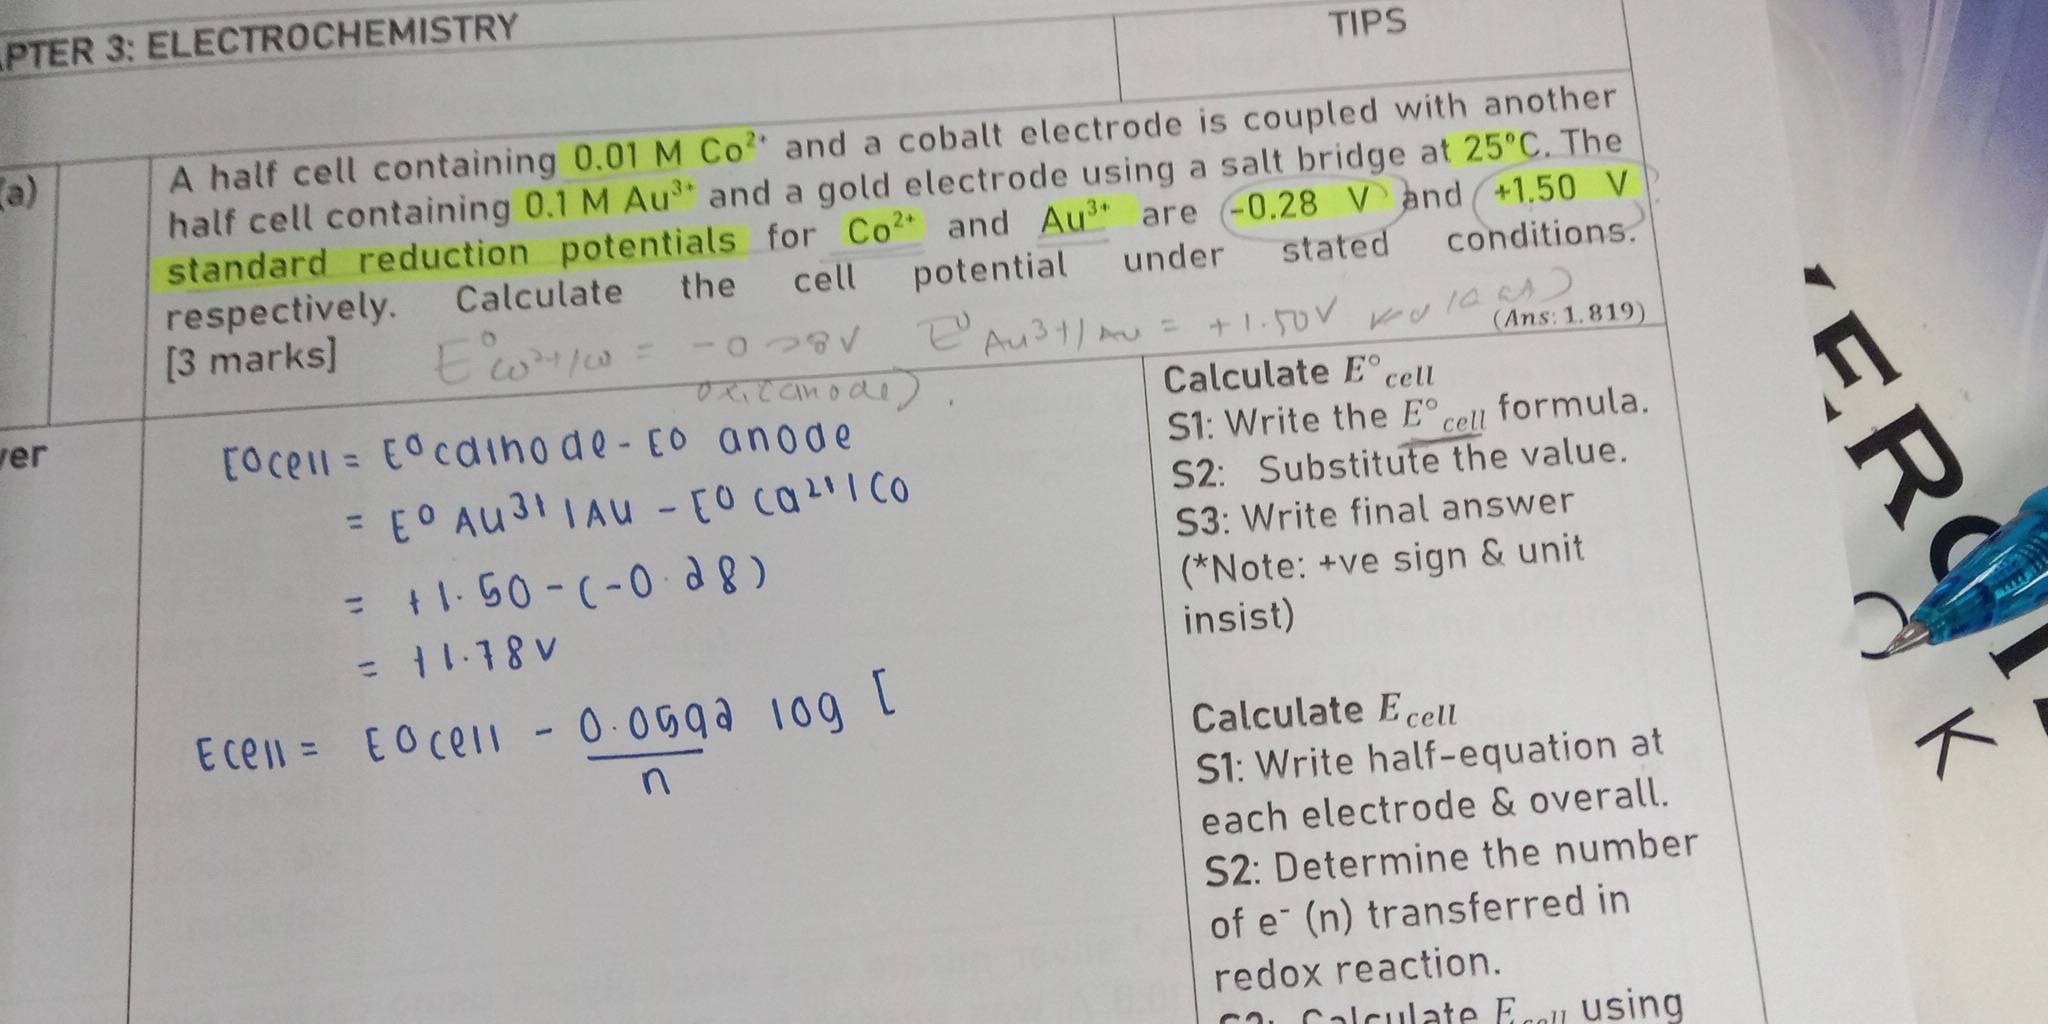 APTER 3: ELECTROCHEMISTRY
TIPS
(a)
A half cell containing 0.01 M Co²⁺ and a cobalt electrode is coupled with another
half cell containing 0.1 M Au³⁺ and a gold electrode using a salt bridge at 25°C. The
standard reduction potentials for Co²⁺ and Au³⁺ are -0.28 V and +1.50 V
respectively. Calculate the cell potential under stated conditions.
[3 marks]
(Ans: 1.819)
E° Co²⁺/Co = -0.28V E° Au³⁺/Au = +1.50V
oxi(anode).
ver
E°cell = E°cathode - E° anode
= E° Au³⁺ / Au - E° Ca²⁺ / Co
= +1.50 - (-0.28)
= +1.78V
Ecell = E°cell - 0.0592/n log [
Calculate E°cell
S1: Write the E°cell formula.
S2: Substitute the value.
S3: Write final answer
(*Note: +ve sign & unit
insist)
Calculate Ecell
S1: Write half-equation at
each electrode & overall.
S2: Determine the number
of e⁻ (n) transferred in
redox reaction.
S3: Calculate Ecell using
K